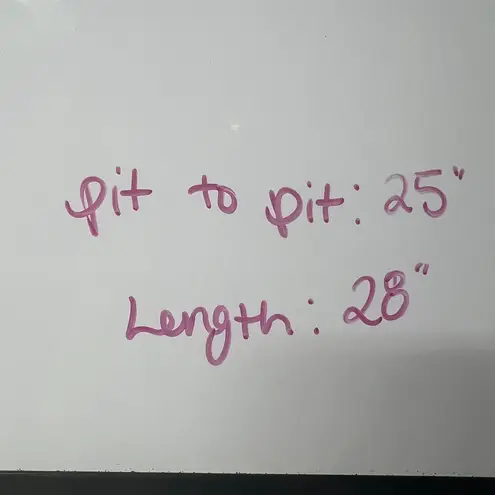 pit to pit: 25"
Length: 28"